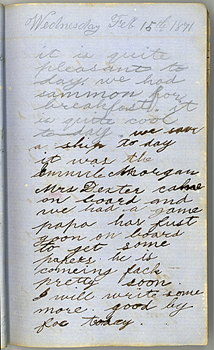 Wednesday Feb. 15th 1871
it is quite
pleasant to
day we had
sammon for
breakfast. it
is quite cool
to day. we saw
a ship to day
it was the
Emmule Morgan
Mrs Dexter came
on board and
we had a game
papa has just
goon on board
to get some
papers he is
comeing back
pretty soon
I will write some
more. good by
for today.